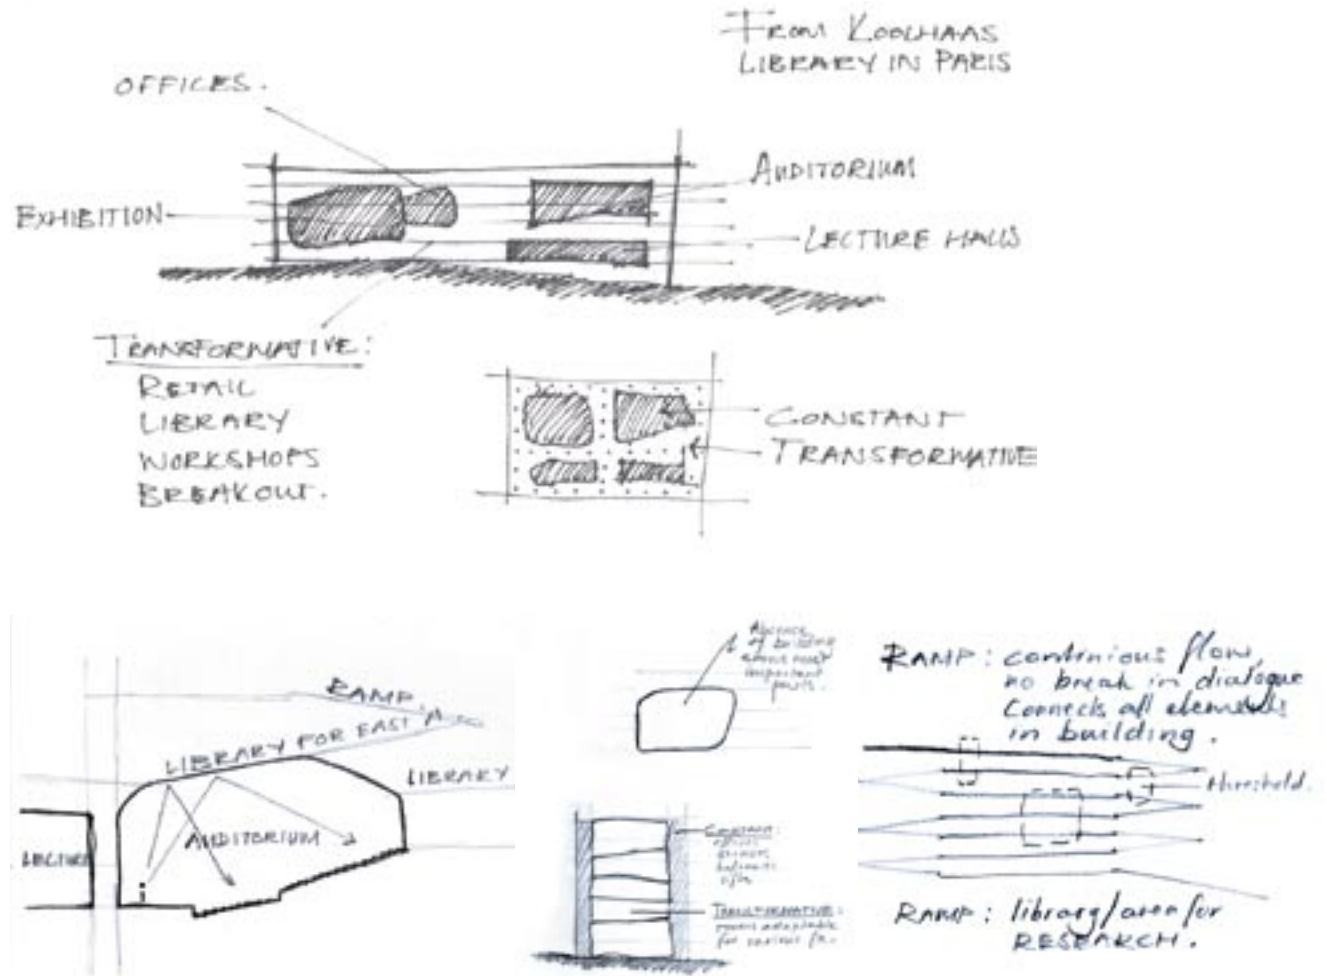 FROM KOOLHAAS
LIBRARY IN PARIS
OFFICES.
AUDITORIUM
EXHIBITION
LECTURE HALLS
TRANSFORMATIVE:
RETAIL
LIBRARY
WORKSHOPS
BREAKOUT.
CONSTANT
TRANSFORMATIVE
RAMP
LIBRARY FOR EAST A
LIBRARY
AUDITORIUM
LECTURE
i
Absence
of building
most
important
parts.
CONSTANT:
offices
TRANSFORMATIVE:
rooms adaptable
for various
RAMP: continious flow,
no break in dialogue
Connects all elements
in building.
threshold.
RAMP: library/area for
RESEARCH.